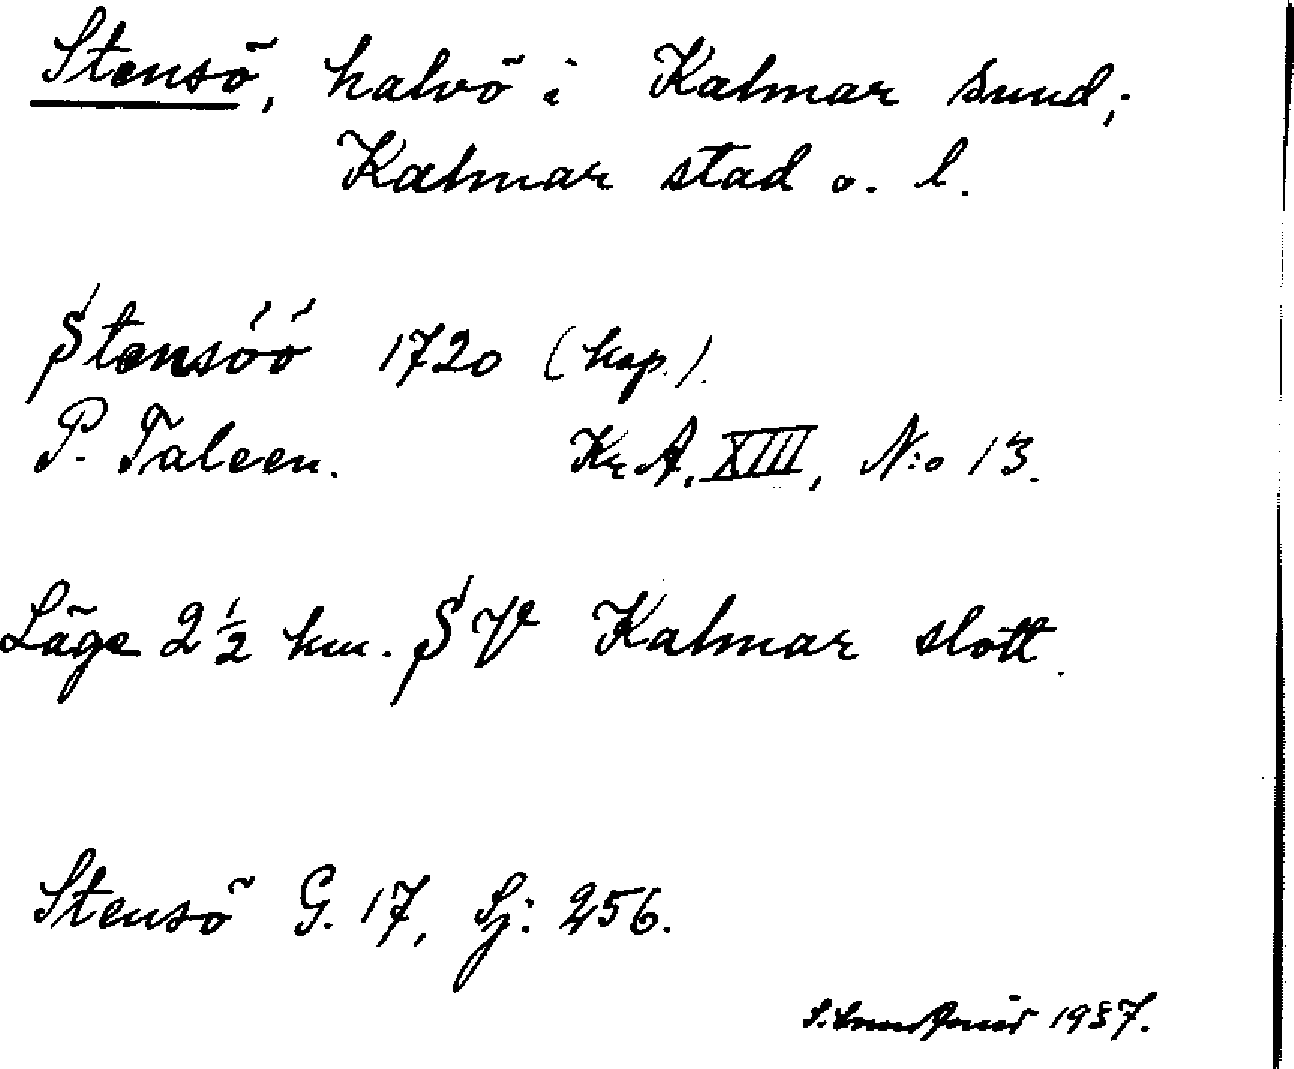 Stensö, halvö i Kalmar sund;
Kalmar stad o. l.
Stensóó 1720 (kop.).
P. Taleen. Kr.A. XIII, N:o 13.
Läge 2½ km. SV Kalmar slott.
Stensö G. 17, Sj: 256.
1937.